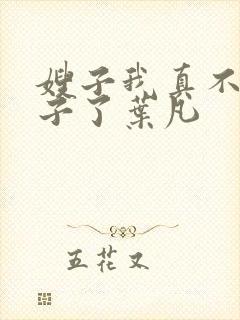 嫂子我真不
子了葉凡
五花又